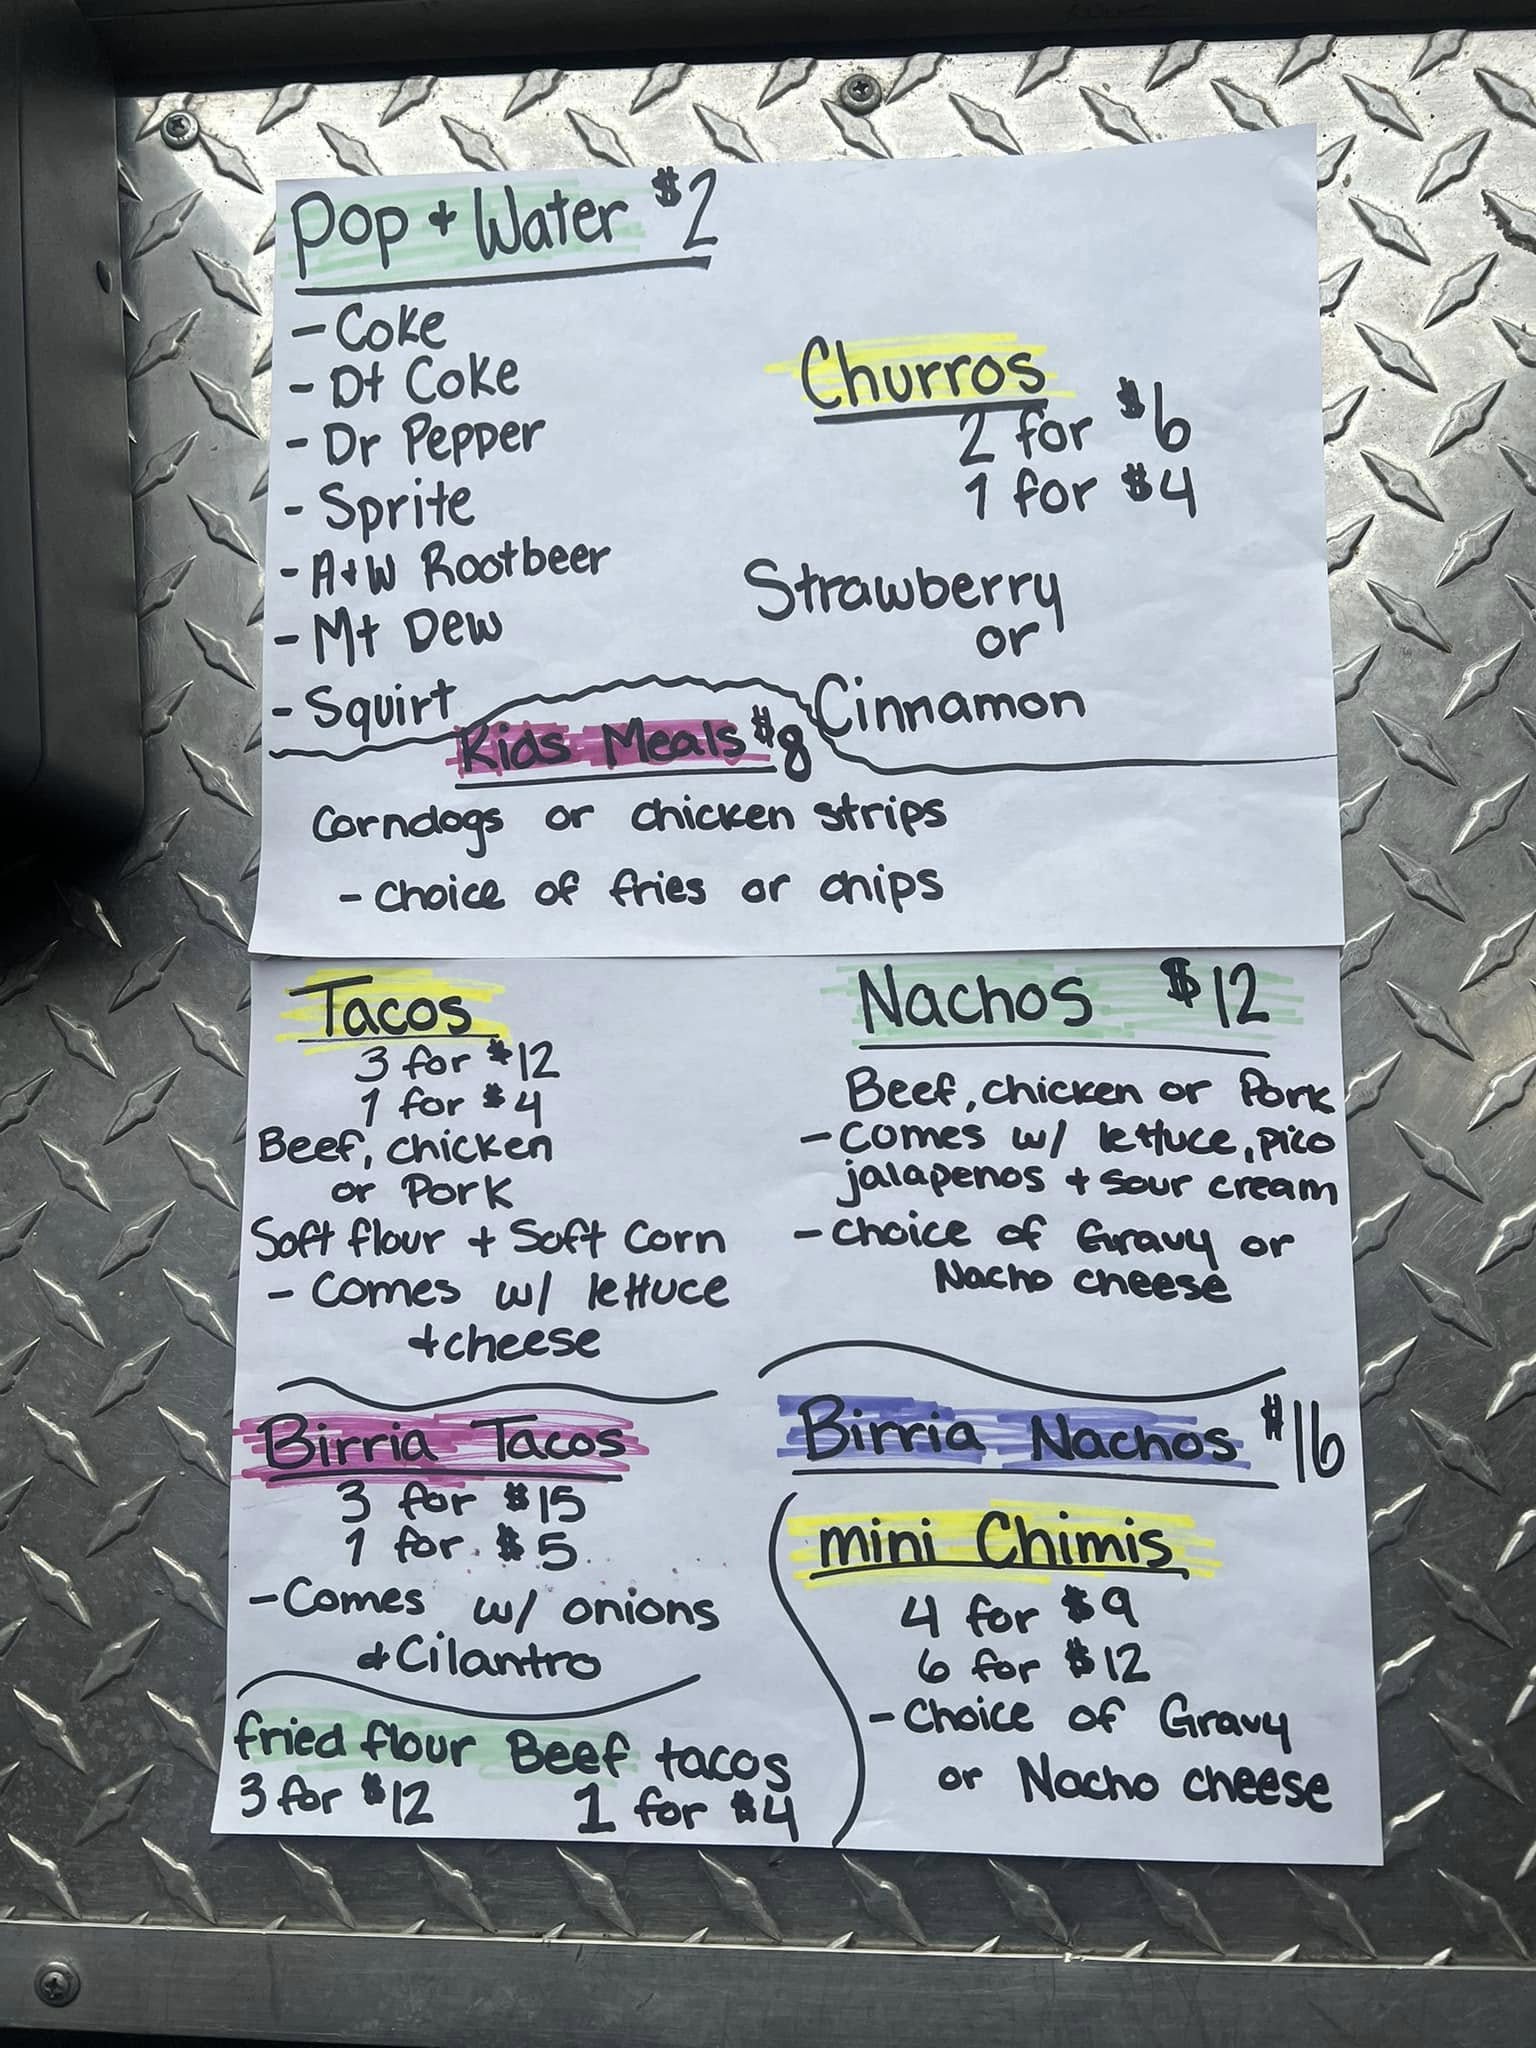 Pop + Water $2
- Coke
- Dt Coke
- Dr Pepper
- Sprite
- A+W Rootbeer
- Mt Dew
- Squirt
Churros
2 for $6
1 for $4
Strawberry
or
Cinnamon
Kids Meals $8
Corndogs or chicken strips
- Choice of fries or chips
Tacos
3 for $12
1 for $4
Beef, chicken
or Pork
Soft flour + Soft Corn
- Comes w/ lettuce
+ cheese
Nachos $12
Beef, chicken or Pork
- Comes w/ lettuce, pico
jalapenos + sour cream
- Choice of Gravy or
Nacho cheese
Birria Tacos
3 for $15
1 for $5
- Comes w/ onions
+ Cilantro
fried flour Beef tacos
3 for $12 1 for $4
Birria Nachos $16
mini Chimis
4 for $9
6 for $12
- Choice of Gravy
or Nacho cheese